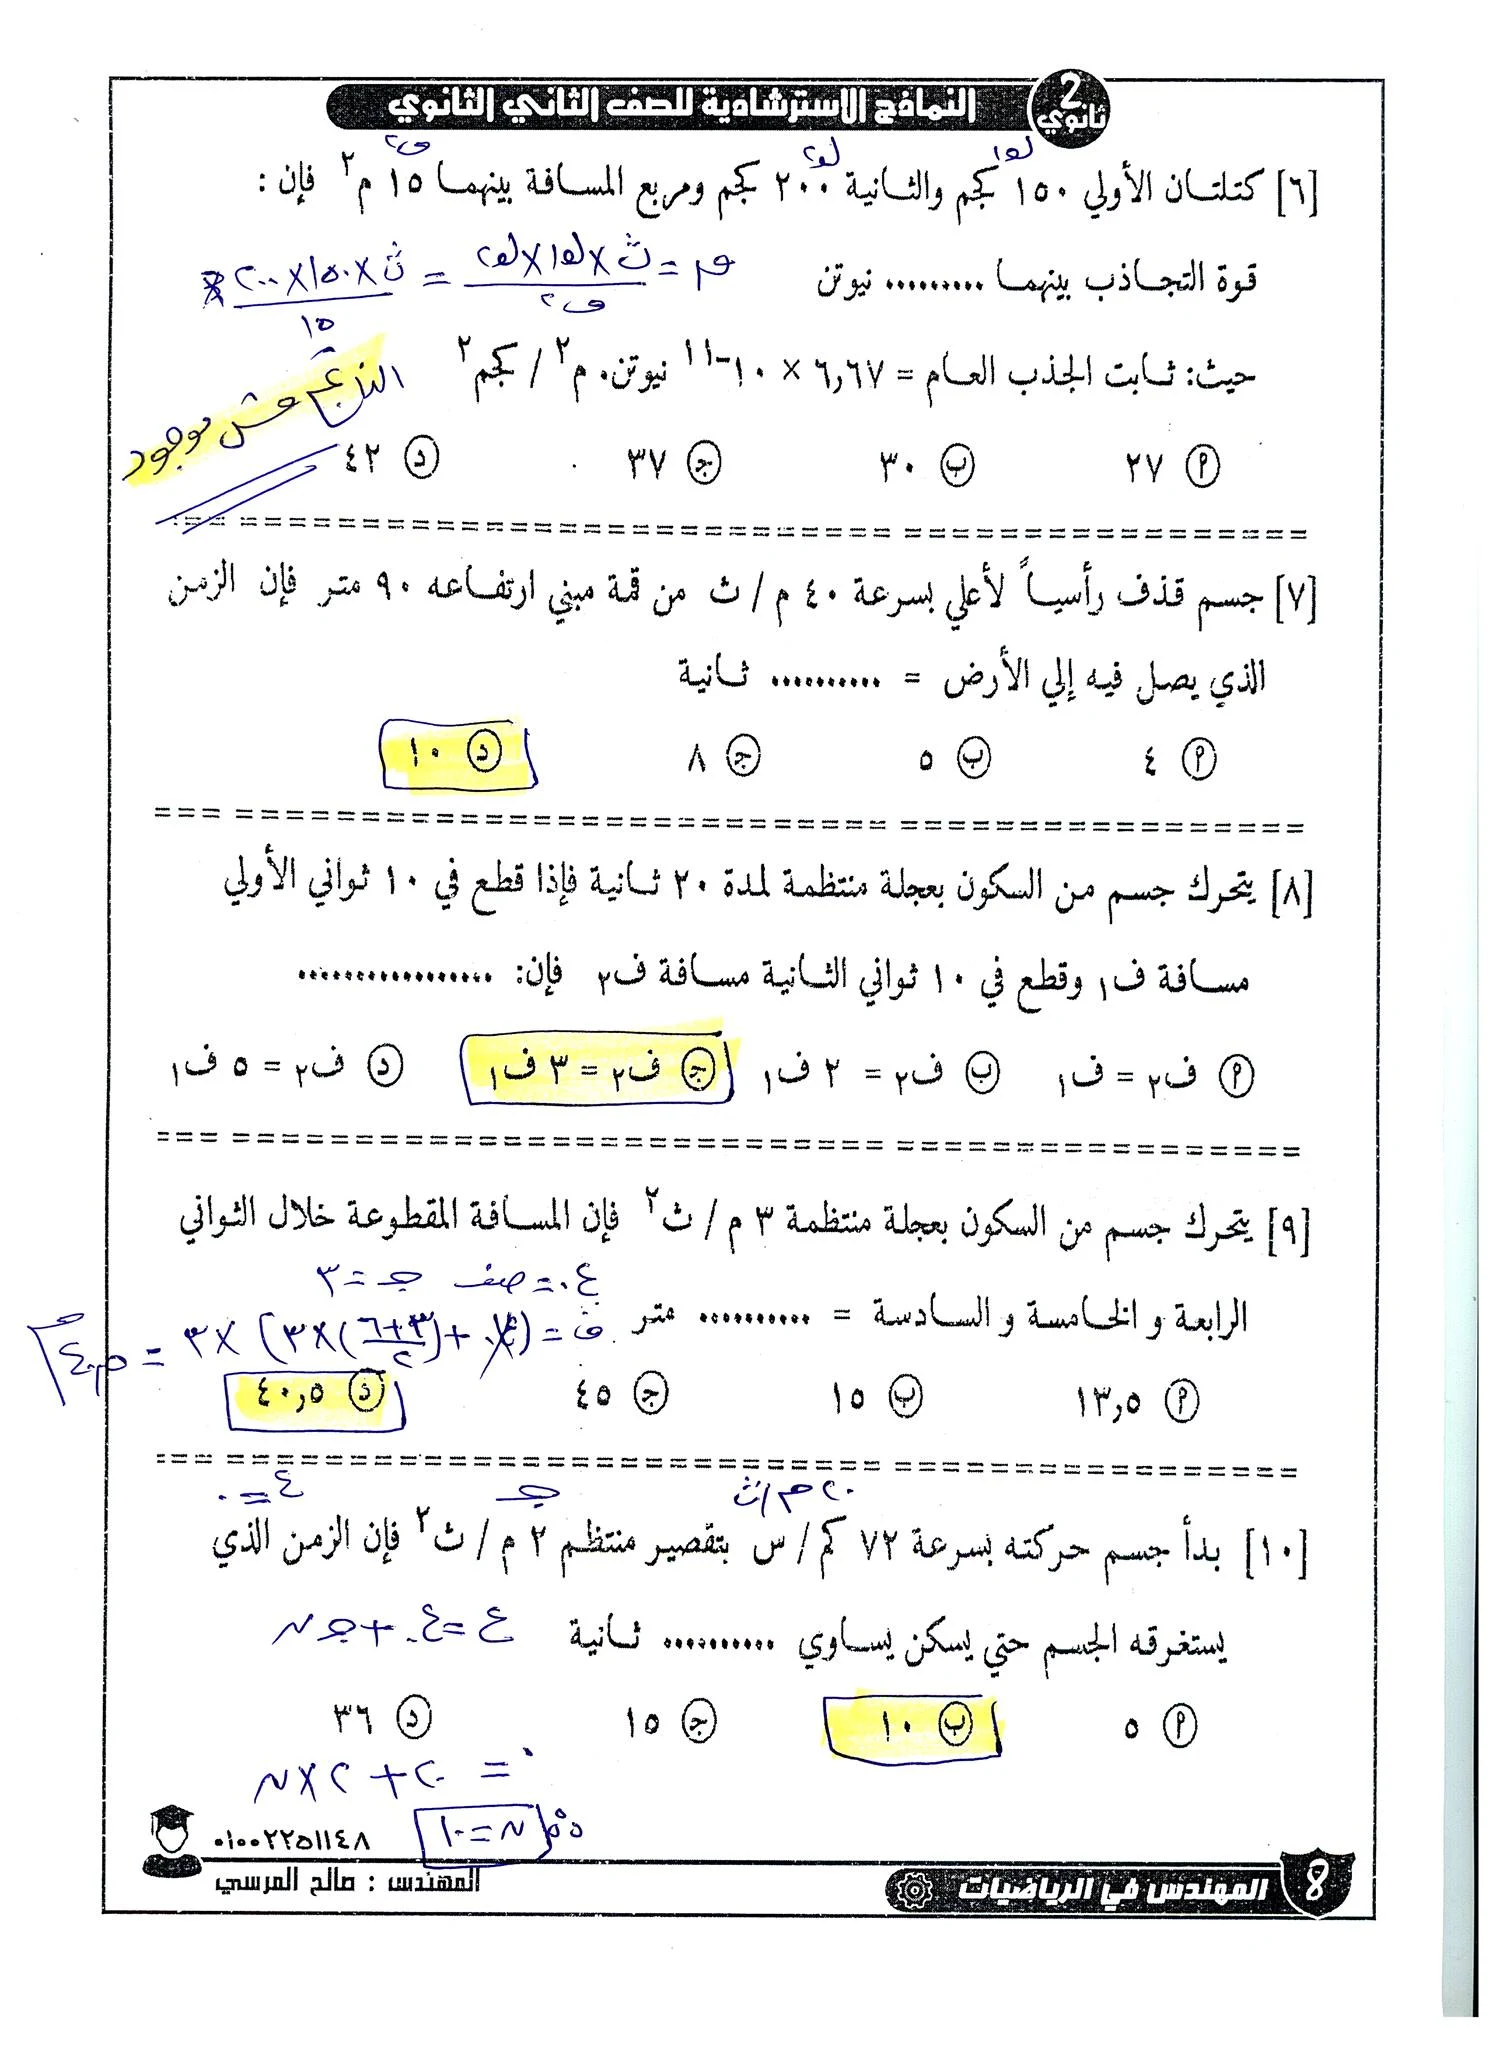 النماذج الاسترشادية للصف الثاني الثانوي
2 ثانوي
ك١ ك٢ ف٢
[٦] كتلتان الأولي ١٥٠ كجم والثانية ٢٠٠ كجم ومربع المسافة بينهما ١٥ م٢ فإن :
قوة التجاذب بينهما ......... نيوتن
= ث × ك١ × ك٢ / ف٢ = ث × ١٥٠ × ٢٠٠ / ١٥
حيث: ثابت الجذب العام = ٦,٦٧ × ١٠-١١ نيوتن. م٢ / كجم٢
مش موجود
أ ٢٧ ب ٣٠ ج ٣٧ د ٤٢
[٧] جسم قذف رأسياً لأعلي بسرعة ٤٠ م / ث من قمة مبني ارتفاعه ٩٠ متر فإن الزمن
الذي يصل فيه إلي الأرض = .......... ثانية
أ ٤ ب ٥ ج ٨ د ١٠
[٨] يتحرك جسم من السكون بعجلة منتظمة لمدة ٢٠ ثانية فإذا قطع في ١٠ ثواني الأولي
مسافة ف١ وقطع في ١٠ ثواني الثانية مسافة ف٢ فإن: .................
أ ف٢ = ف١ ب ف٢ = ٢ ف١ ج ف٢ = ٣ ف١ د ف٢ = ٥ ف١
[٩] يتحرك جسم من السكون بعجلة منتظمة ٣ م / ث٢ فإن المسافة المقطوعة خلال الثواني
ع. = صفر جـ = ٣
الرابعة و الخامسة و السادسة = .......... متر
ف = (ع. + (٣+٦ / ٢) × ٣) × ٣ = ٤٠,٥ م
أ ١٣,٥ ب ١٥ ج ٤٥ د ٤٠,٥
٢٠ م/ث جـ ع = ٠
[١٠] بدأ جسم حركته بسرعة ٧٢ كم / س بتقصير منتظم ٢ م / ث٢ فإن الزمن الذي
يستغرقه الجسم حتي يسكن يساوي .......... ثانية
ع = ع. + جـ ن
أ ٥ ب ١٠ ج ١٥ د ٣٦
٠ = ٢٠ + ٢ × ن
∴ ن = ١٠
٠١٠٠٢٢٥١١٤٨
المهندس : صالح المرسي
المهندس في الرياضيات
8